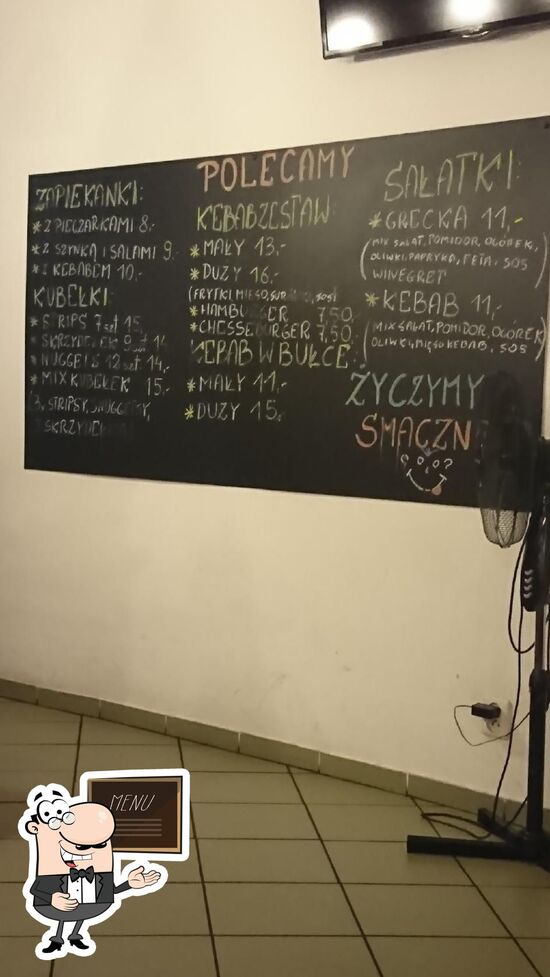 ZAPIEKANKI:
* Z PIECZARKAMI 8,-
* Z SZYNKĄ I SALAMI 9,-
* Z KEBABEM 10,-
KUBEŁKI:
* STRIPS 7 szt 15,
* SKRZYDEŁEK 9 szt 14
* NUGGETS 12 szt 14,-
* MIX KUBEŁEK 15,-
STRIPSY,
POLECAMY
KEBAB ZESTAW:
* MAŁY 13,-
* DUŻY 16,-
(FRYTKI, MIĘSO, SOS)
* HAMBURGER 7,50,
* CHESSEBURGER 7,50,-
KEBAB W BUŁCE:
* MAŁY 11,-
* DUŻY 15,
SAŁATKI:
* GRECKA 11,-
(MIX SAŁAT, POMIDOR, OGÓREK,
OLIWKI, PAPRYKA, FETA, SOS
WINEGRET
* KEBAB 11,-
(MIX SAŁAT, POMIDOR, OGÓREK
OLIWKI, MIĘSO KEBAB, SOS)
ŻYCZYMY
SMACZN
MENU